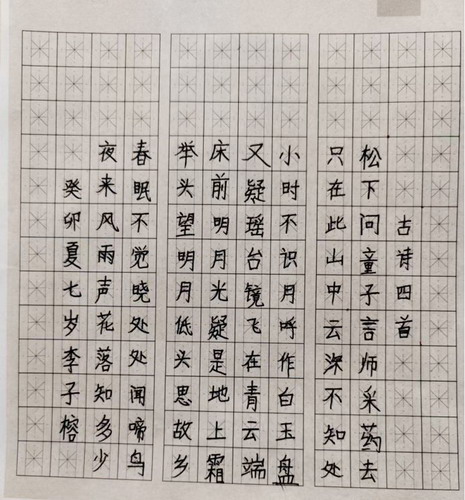 古诗四首
松下问童子言师采药去
只在此山中云深不知处
小时不识月呼作白玉盘
又疑瑶台镜飞在青云端
床前明月光疑是地上霜
举头望明月低头思故乡
春眠不觉晓处处闻啼鸟
夜来风雨声花落知多少
癸卯夏七岁李子榕